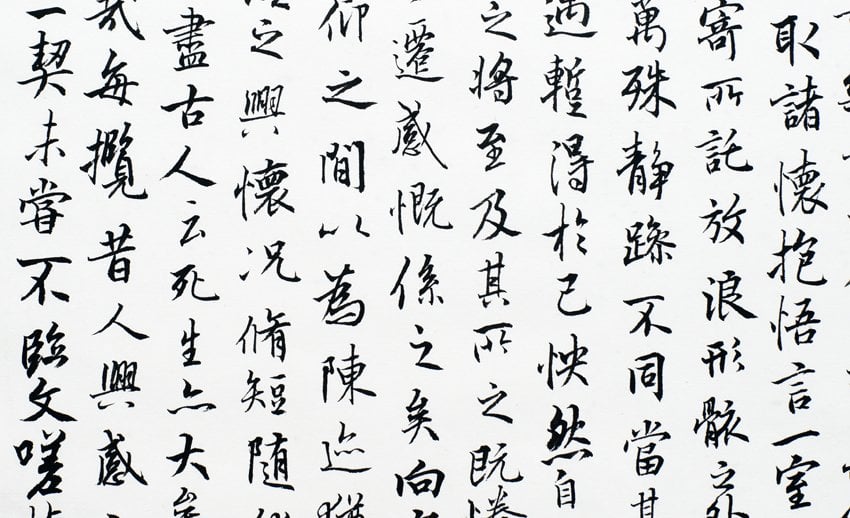 取諸懷抱悟言一室
寄所託放浪形骸之外
萬殊静躁不同當其
遇暫得於己怏然自
之將至及其所之既惓
遷感慨係之矣向
仰之間以為陳迹猶
之興懷況脩短随
盡古人云死生亦大矣
哉每攬昔人興感
一契未嘗不臨文嗟